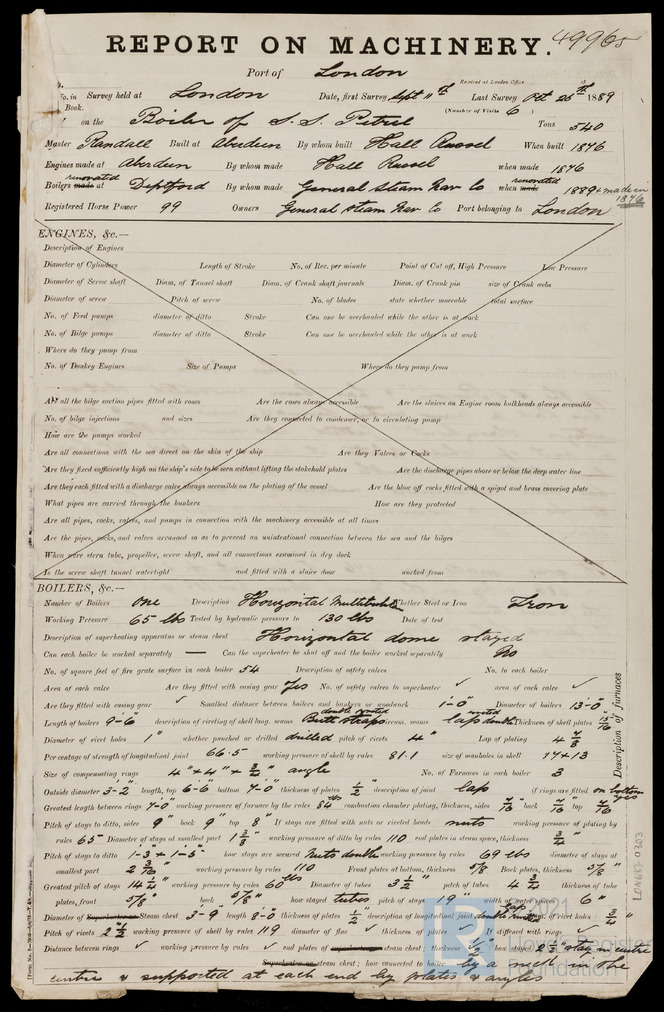 REPORT ON MACHINERY. 49965
Port of London
Received at London Office
No. in Book. Survey held at London Date, first Survey Sept 11th Last Survey Oct 26th 1889
(Number of Visits 6)
on the Boiler of S.S. Petrel Tons 540
Master Randall Built at Aberdeen By whom built Hall Russel When built 1876
Engines made at Aberdeen By whom made Hall Russel when made 1876
Boilers made renovated at Deptford By whom made General Steam Nav Co when made renovated 1889 & made in 1876
Registered Horse Power 99 Owners General Steam Nav Co Port belonging to London
ENGINES, &c.—
Description of Engines
Diameter of Cylinders Length of Stroke No. of Rev. per minute Point of Cut off, High Pressure Low Pressure
Diameter of Screw shaft Diam. of Tunnel shaft Diam. of Crank shaft journals Diam. of Crank pin size of Crank webs
Diameter of screw Pitch of screw No. of blades state whether moveable total surface
No. of Feed pumps diameter of ditto Stroke Can one be overhauled while the other is at work
No. of Bilge pumps diameter of ditto Stroke Can one be overhauled while the other is at work
Where do they pump from
No. of Donkey Engines Size of Pumps Where do they pump from
Are all the bilge suction pipes fitted with roses Are the roses always accessible Are the sluices on Engine room bulkheads always accessible
No. of bilge injections and sizes Are they connected to condenser, or to circulating pump
How are the pumps worked
Are all connections with the sea direct on the skin of the ship Are they Valves or Cocks
Are they fixed sufficiently high on the ship's side to be seen without lifting the stokehold plates Are the discharge pipes above or below the deep water line
Are they each fitted with a discharge valve always accessible on the plating of the vessel Are the blow off cocks fitted with a spigot and brass covering plate
What pipes are carried through the bunkers How are they protected
Are all pipes, cocks, valves, and pumps in connection with the machinery accessible at all times
Are the pipes, cocks, and valves arranged so as to prevent an unintentional connection between the sea and the bilges
When were stern tube, propeller, screw shaft, and all connections examined in dry dock
Is the screw shaft tunnel watertight and fitted with a sluice door worked from
BOILERS, &c.—
Number of Boilers One Description Horizontal Multitubular Whether Steel or Iron Iron
Working Pressure 65 lbs Tested by hydraulic pressure to 130 lbs Date of test
Description of superheating apparatus or steam chest Horizontal dome stayed
Can each boiler be worked separately — Can the superheater be shut off and the boiler worked separately No
No. of square feet of fire grate surface in each boiler 54 Description of safety valves No. to each boiler
Area of each valve Are they fitted with easing gear Yes No. of safety valves to superheater ✓ area of each valve ✓
Are they fitted with easing gear ✓ Smallest distance between boilers and bunkers or woodwork 1'-0" Diameter of boilers 13'-0"
Length of boilers 9'-6" description of riveting of shell long. seams Butt straps double riveted circum. seams lap double riveted Thickness of shell plates 13/16
Diameter of rivet holes 1" whether punched or drilled drilled pitch of rivets 4" Lap of plating 4 7/8
Per centage of strength of longitudinal joint 66.5 working pressure of shell by rules 81.1 size of manholes in shell 17 x 13
Size of compensating rings 4" x 4" x 3/4" angle No. of Furnaces in each boiler 3
Outside diameter 3'-2" length, top 6'-6" bottom 7'-0" thickness of plates 1/2" description of joint lap if rings are fitted on bottom yes
Greatest length between rings 7'-0" working pressure of furnace by the rules 84 combustion chamber plating, thickness, sides 7/16 back 7/16 top 7/16
Pitch of stays to ditto, sides 9" back 9" top 8" If stays are fitted with nuts or riveted heads nuts working pressure of plating by
rules 65 Diameter of stays at smallest part 1 3/8" working pressure of ditto by rules 110 end plates in steam space, thickness 3/4"
Pitch of stays to ditto 1'-3 x 1'-5" how stays are secured Nuts double working pressure by rules 69 lbs diameter of stays at
smallest part 2 3/16 working pressure by rules 110 Front plates at bottom, thickness 5/8 Back plates, thickness 5/8"
Greatest pitch of stays 14 1/4" working pressure by rules 60 lbs Diameter of tubes 3 1/2" pitch of tubes 4 3/4" thickness of tube
plates, front 5/8" back 5/8" how stayed tubes pitch of stays 19" width of water spaces 6"
Diameter of Superheater or Steam chest 3'-9" length 8'-0" thickness of plates 1/2" description of longitudinal joint lap double riveted diam. of rivet holes 3/4"
Pitch of rivets 2 1/2" working pressure of shell by rules 119 diameter of flue ✓ thickness of plates ✓ If stiffened with rings ✓
Distance between rings ✓ working pressure by rules ✓ end plates of superheater or steam chest; thickness 1/2" how stayed 2 3/8" stay in centre
Superheater or steam chest; how connected to boiler by a neck in the
centre & supported at each end by plates & angles
Description of furnaces
LON637-0303
© 2021
Lloyd's Register
Foundation